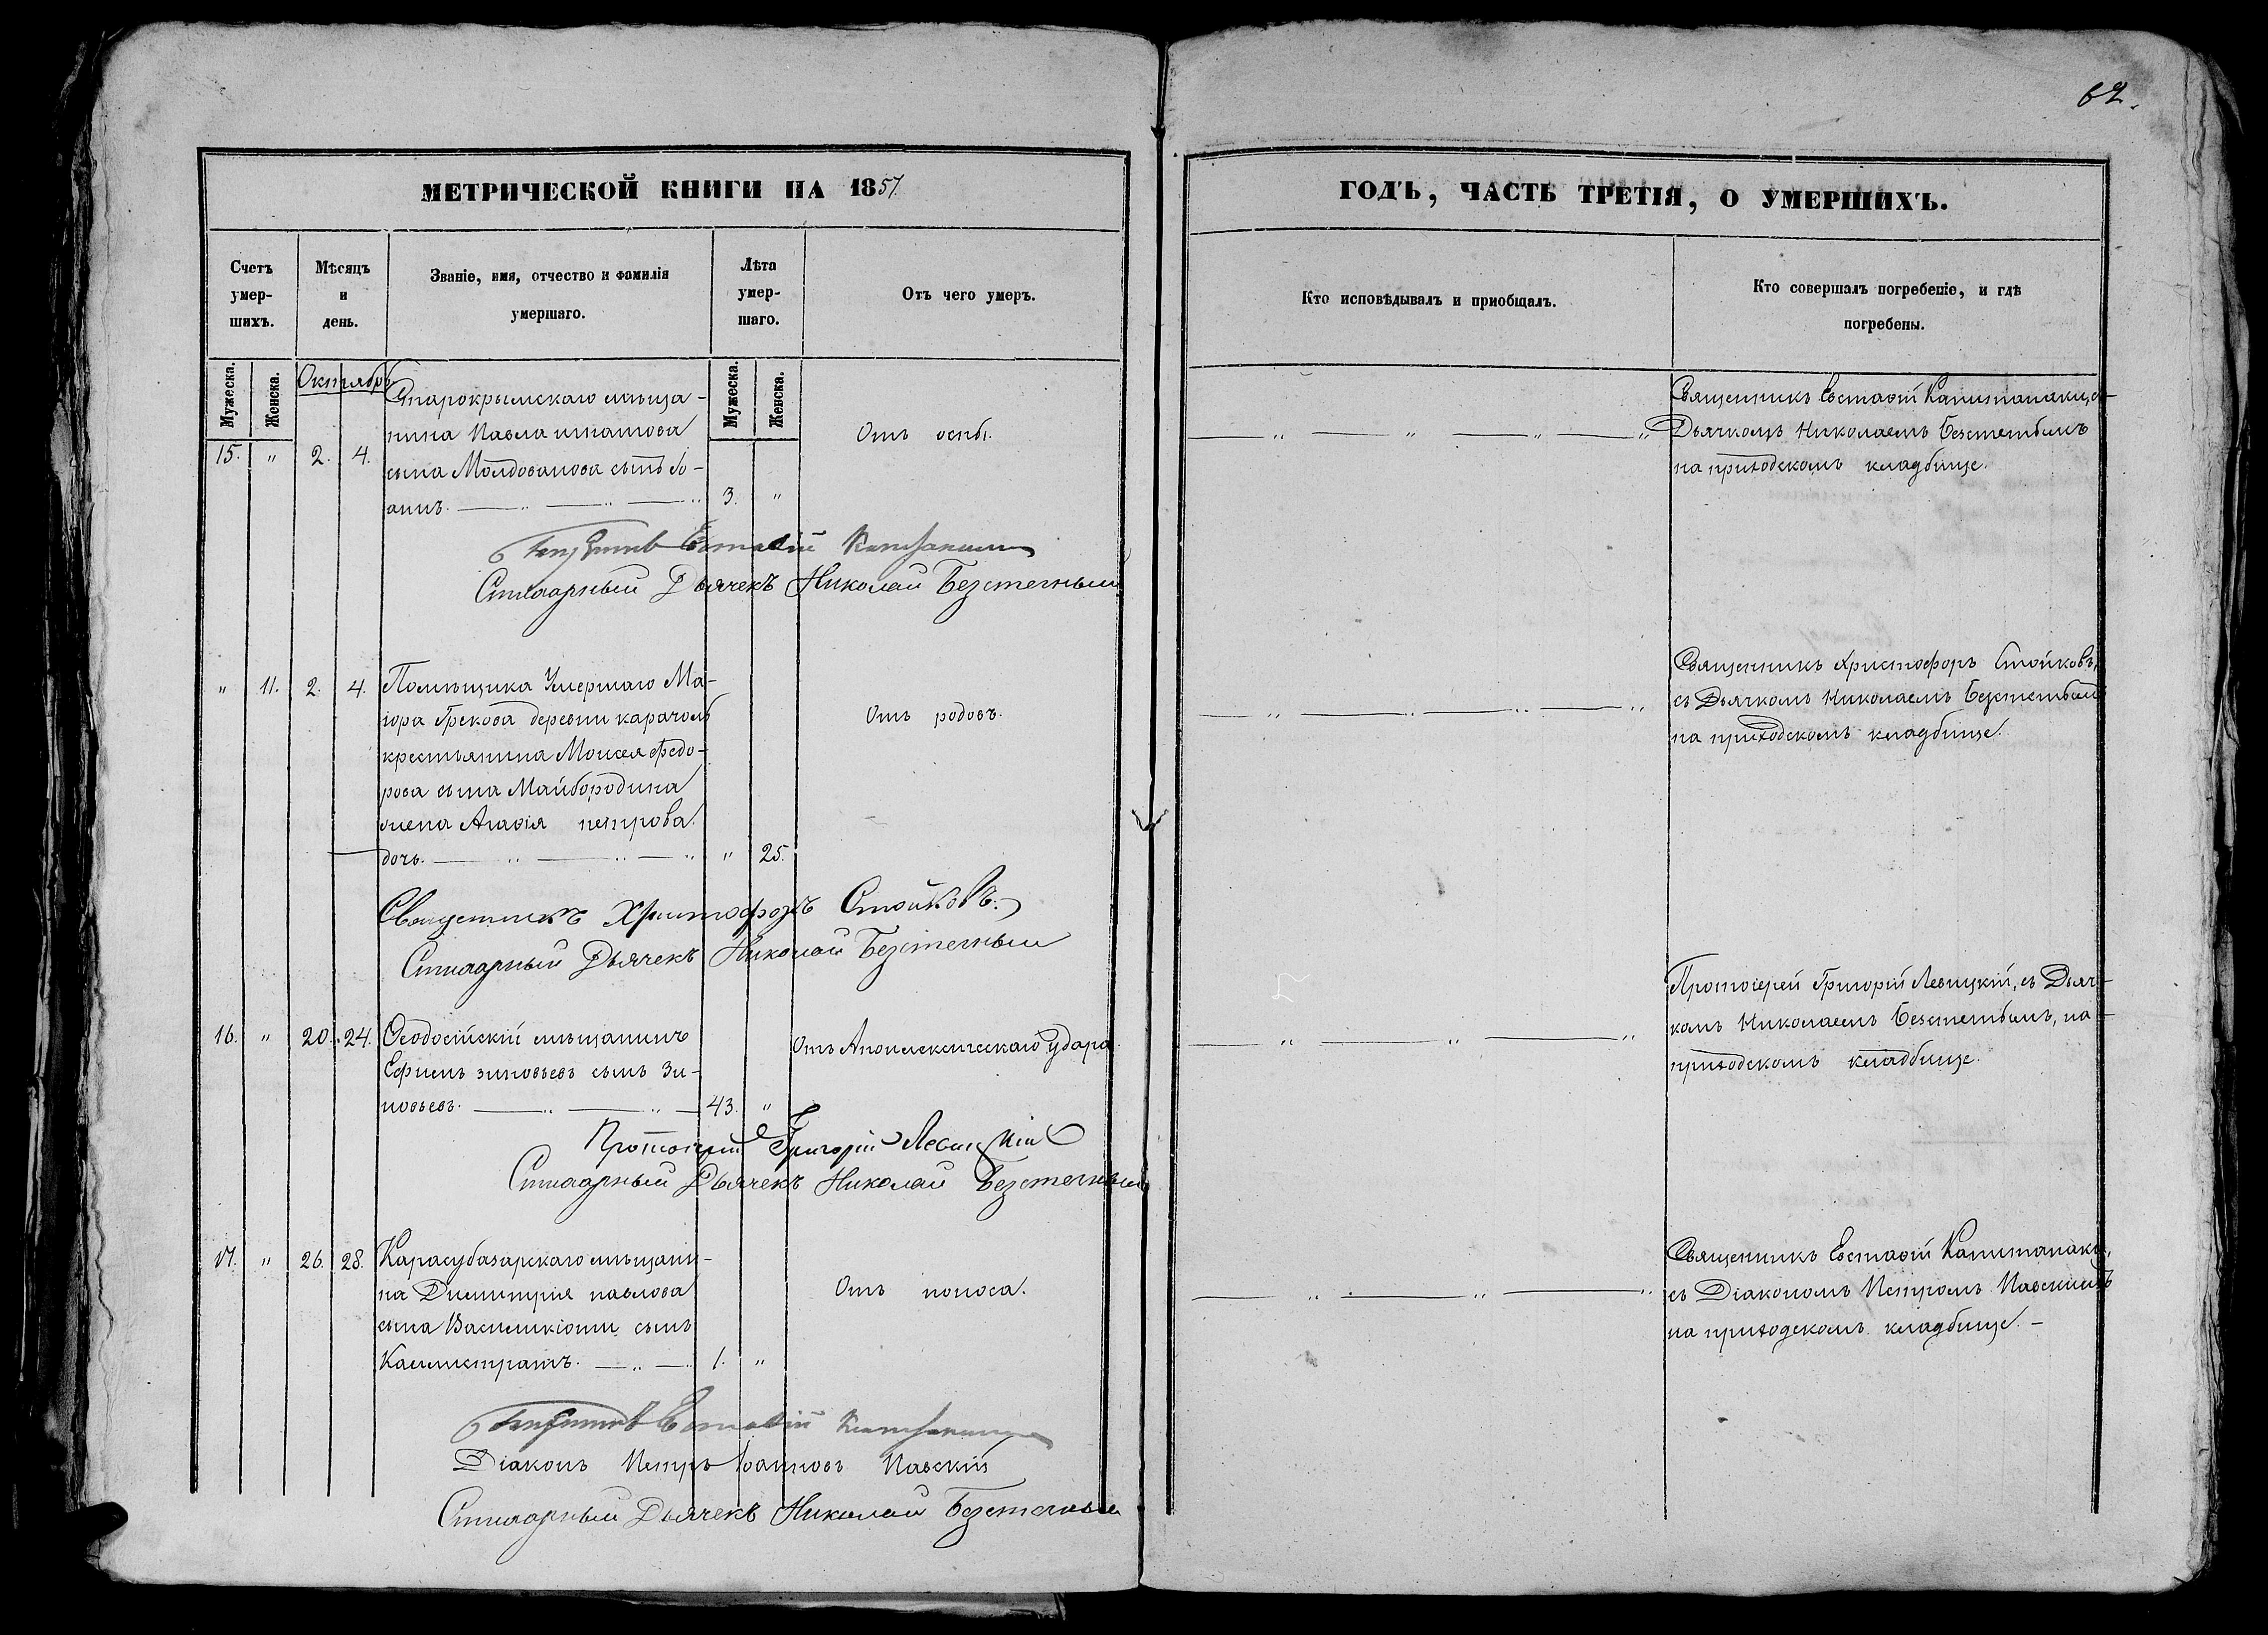 62.
МЕТРИЧЕСКОЙ КНИГИ НА 1857.
ГОДЪ, ЧАСТЬ ТРЕТІЯ, О УМЕРШИХЪ.
Счетъ умер-шихъ.
Мѣсяцъ и день.
Званіе, имя, отчество и фамилія умершаго.
Лѣта умер-шаго.
Отъ чего умеръ.
Кто исповѣдывалъ и приобщалъ.
Кто совершалъ погребеніе, и гдѣ погребены.
Мужеска. Женска.
Мужеска. Женска.
Октябрь
15. " 2. 4.
Старокрымскаго мѣща-
нина Павла игнатова
сына Молдованова сынъ Іо-
аннъ. 3. "
Отъ оспы.
Священникъ Евстафій Капитанаки, съ
Дьячкомъ Николаемъ Безстетнымъ
на приходскомъ кладбище.
Евстафій
Стихарный Дьячекъ Николай
" 11. 2. 4.
Помѣщика Умершаго Ма-
іора Грекова деревни карачолъ
крестьянина Моисея федо-
рова сына Майбородина
жена Агафія петрова
дочь. " 25.
Отъ родовъ.
Священникъ Христофоръ Стойковъ,
съ Дьячкомъ Николаемъ
на приходскомъ кладбище.
Священникъ Христофоръ Стойковъ.
Стихарный Дьячекъ Николай
16. " 20. 24.
Ѳеодосійскій мѣщанинъ
Ефимъ зиновьевъ сынъ Зи-
новьевъ. 43. "
Отъ Апоплексическаго Удара
Протоіерей Григорій Левицкій, съ Дьяч-
комъ Николаемъ на
приходскомъ кладбище.
Протоіерей Григорій Левицкій
Стихарный Дьячекъ Николай
17. " 26. 28.
Карасубазарскаго мѣщани-
на Димитрія павлова
сына Василикіоти сынъ
Каллистратъ. 1. "
Отъ поноса.
Священникъ Евстафій Капитанаки,
съ Діакономъ Петромъ Павскимъ
на приходскомъ кладбище.
Евстафій
Діаконъ Петръ Іоанновъ Павскій
Стихарный Дьячекъ Николай